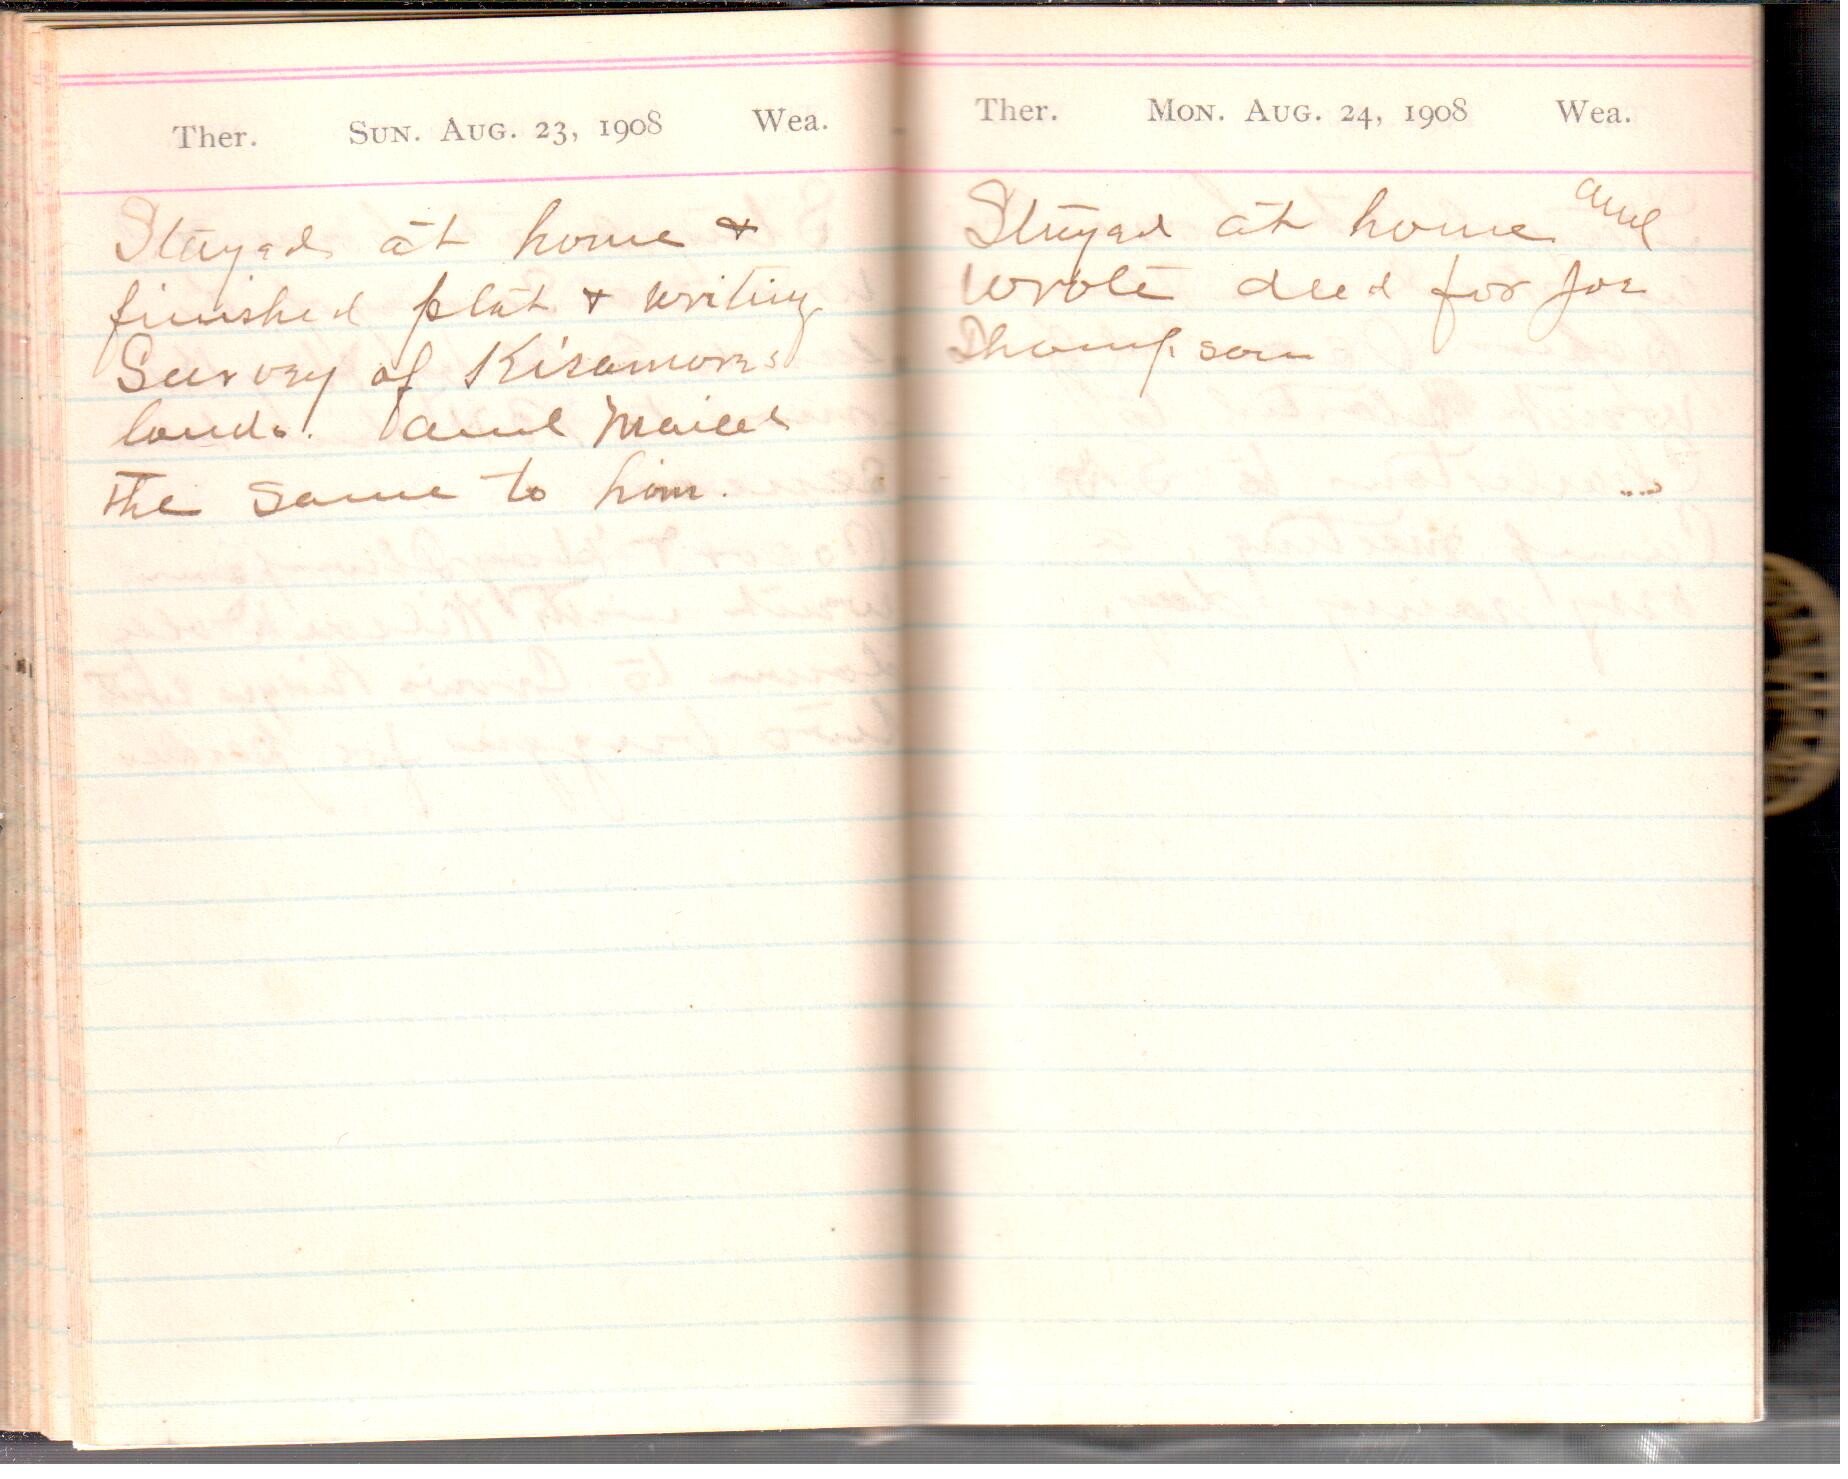 Ther. Sun. Aug. 23, 1908 Wea.
Stayed at home &
finished plat & writing
Survey of Kisamores
lands. and Mailed
the same to him.
Ther. Mon. Aug. 24, 1908 Wea.
Stayed at home and
wrote deed for Joe
Thompson